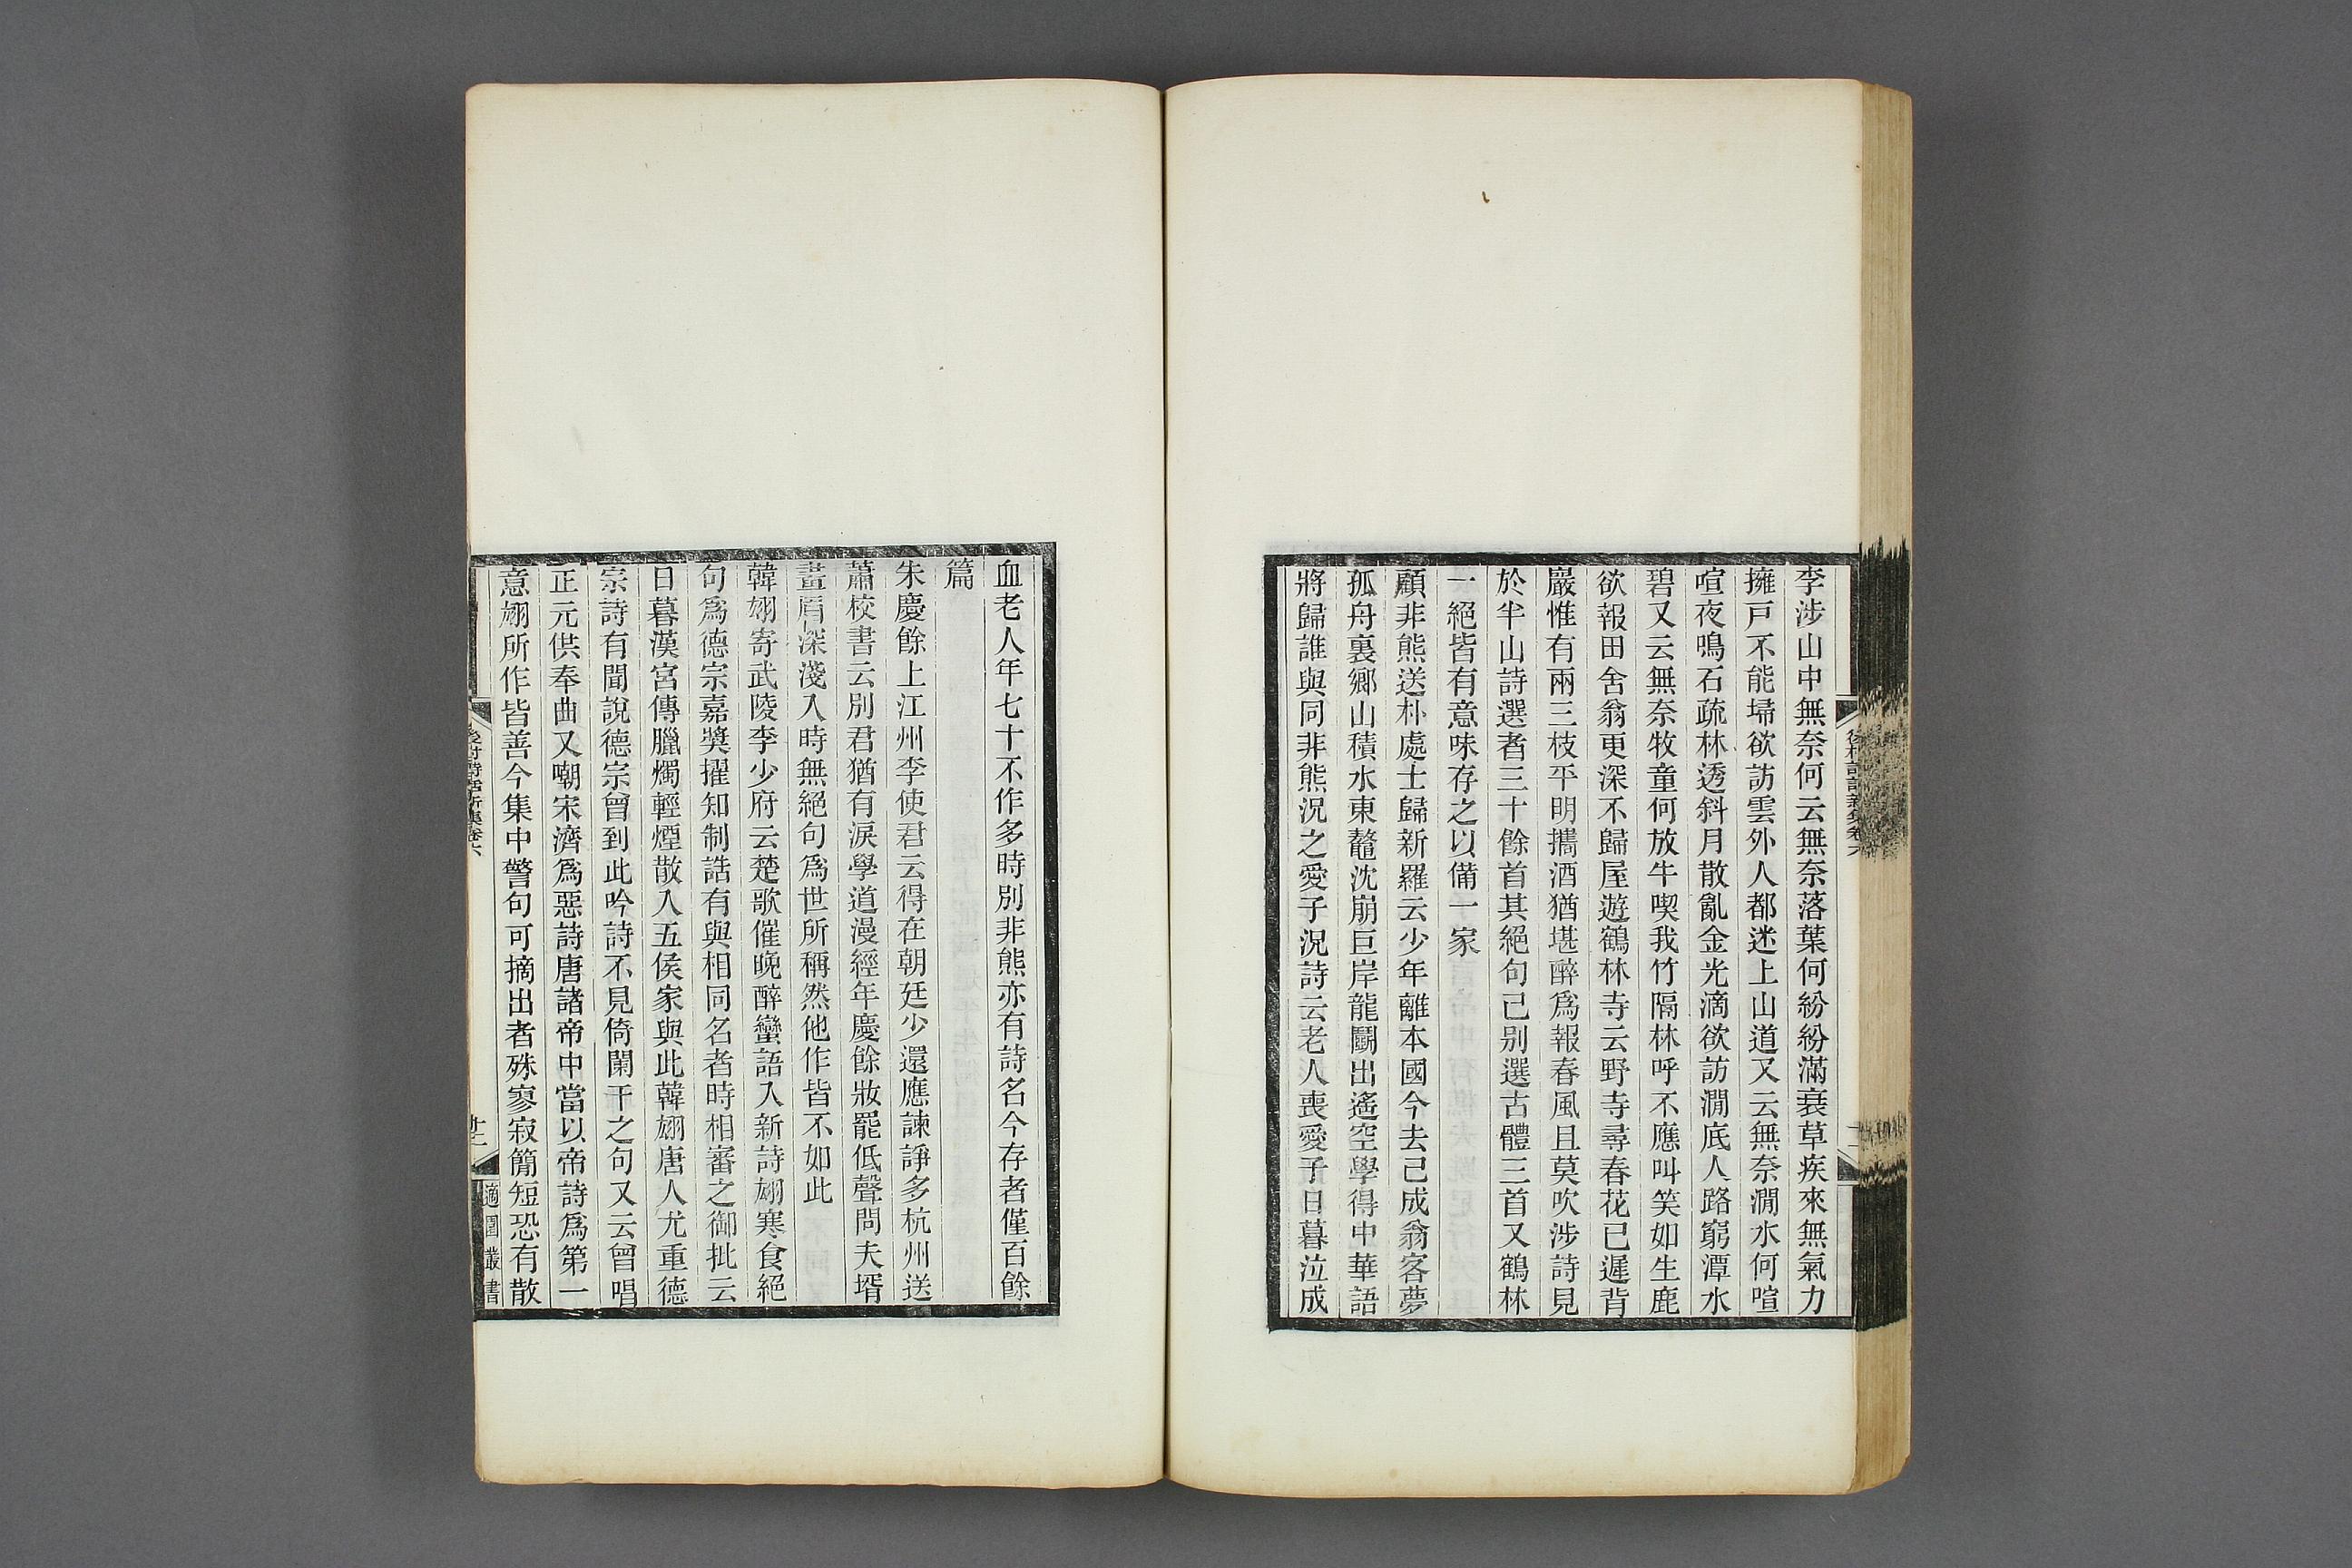 李涉山中無奈何云無奈落葉何紛紛滿衰草疾來無氣力
擁戸不能埽欲訪雲外人都迷上山道又云無奈澗水何喧
喧夜鳴石疏林透斜月散亂金光滴欲訪澗底人路窮潭水
碧又云無奈牧童何放牛喫我竹隔林呼不應叫笑如生鹿
欲報田舍翁更深不歸屋遊鶴林寺云野寺尋春花已遲背
巖惟有兩三枝平明攜酒猶堪醉爲報春風且莫吹涉詩見
於半山詩選者三十餘首其絕句已別選古體三首又鶴林
一絕皆有意味存之以備一家
顧非熊送朴處士歸新羅云少年離本國今去已成翁客夢
孤舟裏鄉山積水東鼇沈崩巨岸龍鬭出遙空學得中華語
將歸誰與同非熊況之愛子況詩云老人喪愛子日暮泣成
血老人年七十不作多時別非熊亦有詩名今存者僅百餘
篇
朱慶餘上江州李使君云得在朝廷少還應諫諍多杭州送
蕭校書云別君猶有淚學道漫經年慶餘妝罷低聲問夫壻
畫眉深淺入時無絕句爲世所稱然他作皆不如此
韓翃寄武陵李少府云楚歌催晚醉蠻語入新詩翃寒食絕
句爲德宗嘉獎擢知制誥有與相同名者時相審之御批云
日暮漢宮傳臘燭輕煙散入五侯家與此韓翃唐人尤重德
宗詩有聞說德宗曾到此吟詩不見倚闌干之句又云曾唱
正元供奉曲又嘲宋濟爲惡詩唐諸帝中當以帝詩爲第一
意翃所作皆善今集中警句可摘出者殊寥寂簡短恐有散
後村詩話新集卷六
十二
適園叢書